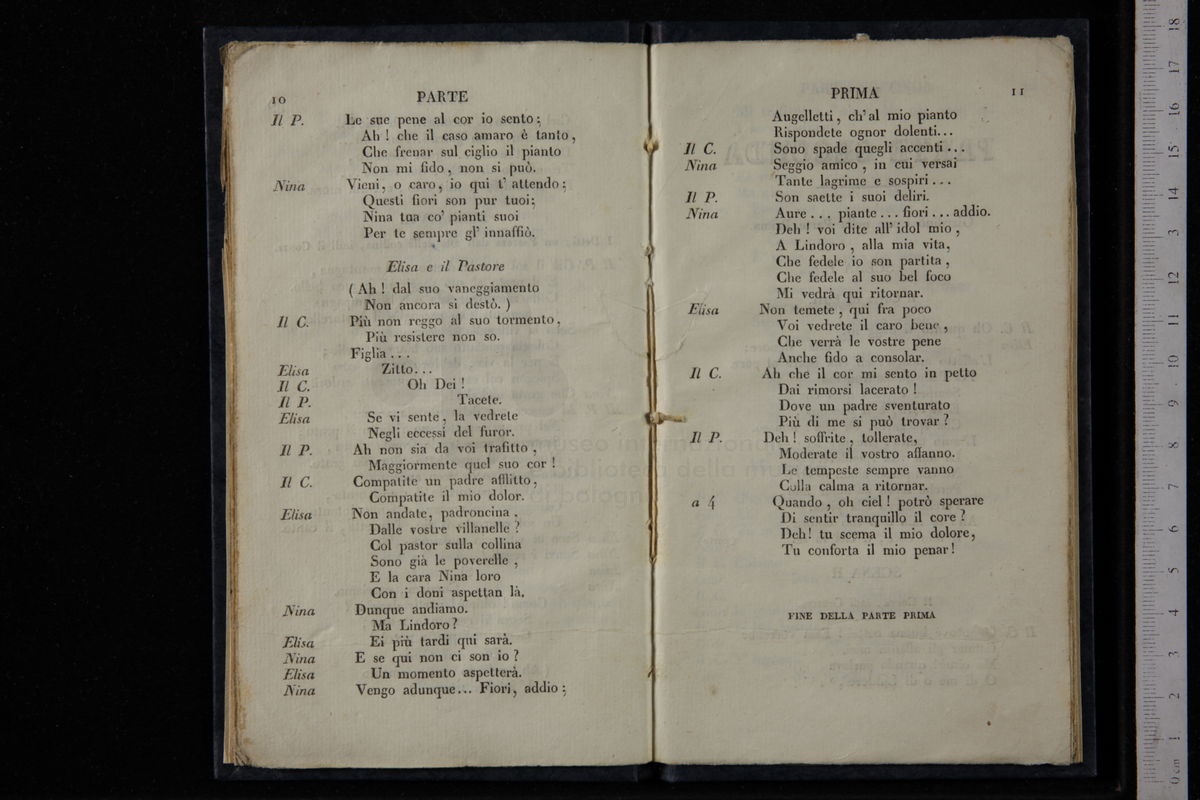 10 PARTE
Il P. Le sue pene al cor io sento;
Ah ! che il caso amaro è tanto,
Che frenar sul ciglio il pianto
Non mi fido, non si può.
Nina Vieni, o caro, io qui t' attendo;
Questi fiori son pur tuoi;
Nina tua co' pianti suoi
Per te sempre gl' innaffiò.
Elisa e il Pastore
( Ah ! dal suo vaneggiamento
Non ancora si destò. )
Il C. Più non reggo al suo tormento,
Più resistere non so.
Figlia . . .
Elisa Zitto. . .
Il C. Oh Dei !
Il P. Tacete.
Elisa Se vi sente, la vedrete
Negli eccessi del furor.
Il P. Ah non sia da voi trafitto ,
Maggiormente quel suo cor !
Il C. Compatite un padre afflitto,
Compatite il mio dolor.
Elisa Non andate, padroncina ,
Dalle vostre villanelle ?
Col pastor sulla collina
Sono già le poverelle ,
E la cara Nina loro
Con i doni aspettan là.
Nina Dunque andiamo.
Ma Lindoro ?
Elisa Ei più tardi qui sarà.
Nina E se qui non ci son io ?
Elisa Un momento aspetterà.
Nina Vengo adunque... Fiori, addio;
PRIMA 11
Augelletti, ch' al mio pianto
Rispondete ognor dolenti...
Il C. Sono spade quegli accenti . . .
Nina Seggio amico , in cui versai
Tante lagrime e sospiri . . .
Il P. Son saette i suoi deliri.
Nina Aure . . . piante . . . fiori . . . addio.
Deh ! voi dite all' idol mio ,
A Lindoro , alla mia vita,
Che fedele io son partita ,
Che fedele al suo bel foco
Mi vedrà qui ritornar.
Elisa Non temete , qui fra poco
Voi vedrete il caro bene ,
Che verrà le vostre pene
Anche fido a consolar.
Il C. Ah che il cor mi sento in petto
Dai rimorsi lacerato !
Dove un padre sventurato
Più di me si può trovar ?
Il P. Deh ! soffrite , tollerate,
Moderate il vostro affanno.
Le tempeste sempre vanno
Colla calma a ritornar.
a 4 Quando , oh ciel ! potrò sperare
Di sentir tranquillo il core ?
Deh! tu scema il mio dolore,
Tu conforta il mio penar!
FINE DELLA PARTE PRIMA